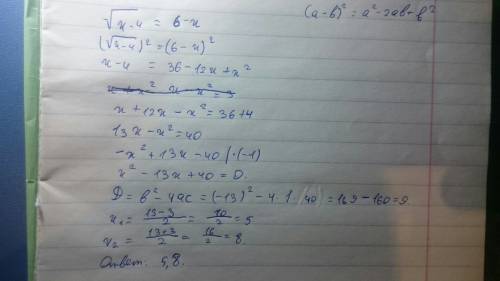 √x-4 = 6-x
(a-b)² = a²-2ab+b²
(√x-4)² = (6-x)²
x-4 = 36-12x+x²
x+12x-x² = 36+4
13x-x²=40
-x²+13x-40 |·(-1)
x²-13x+40=0.
D= b²-4ac = (-13)²-4·1·40 = 169-160=9
x₁= 13-3/2 = 10/2 = 5
x₂= 13+3/2 = 16/2 = 8
Ответ: 5,8.